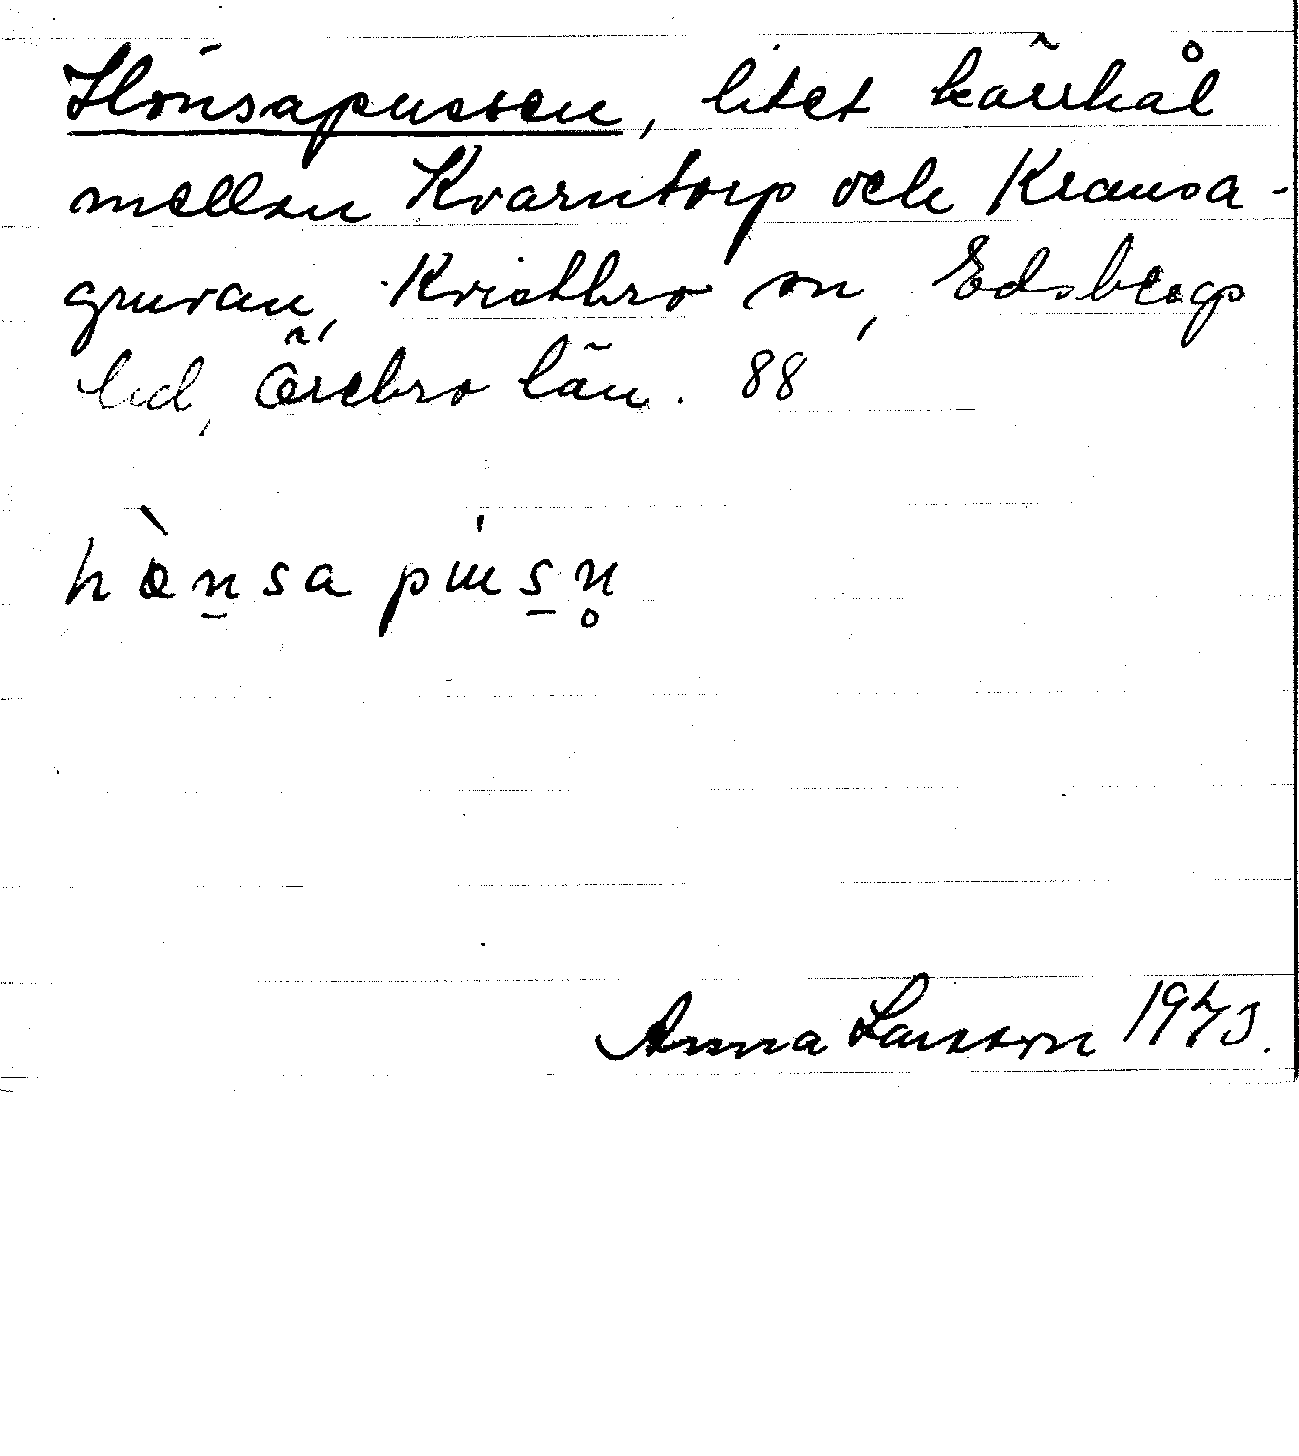 Hönsapussen, litet kärrhål
mellan Kvarntorp och Kransa-
gruvan, Kvistbro sn, Edsbergs
hd, Örebro län. 88
Anna Larsson 1943.